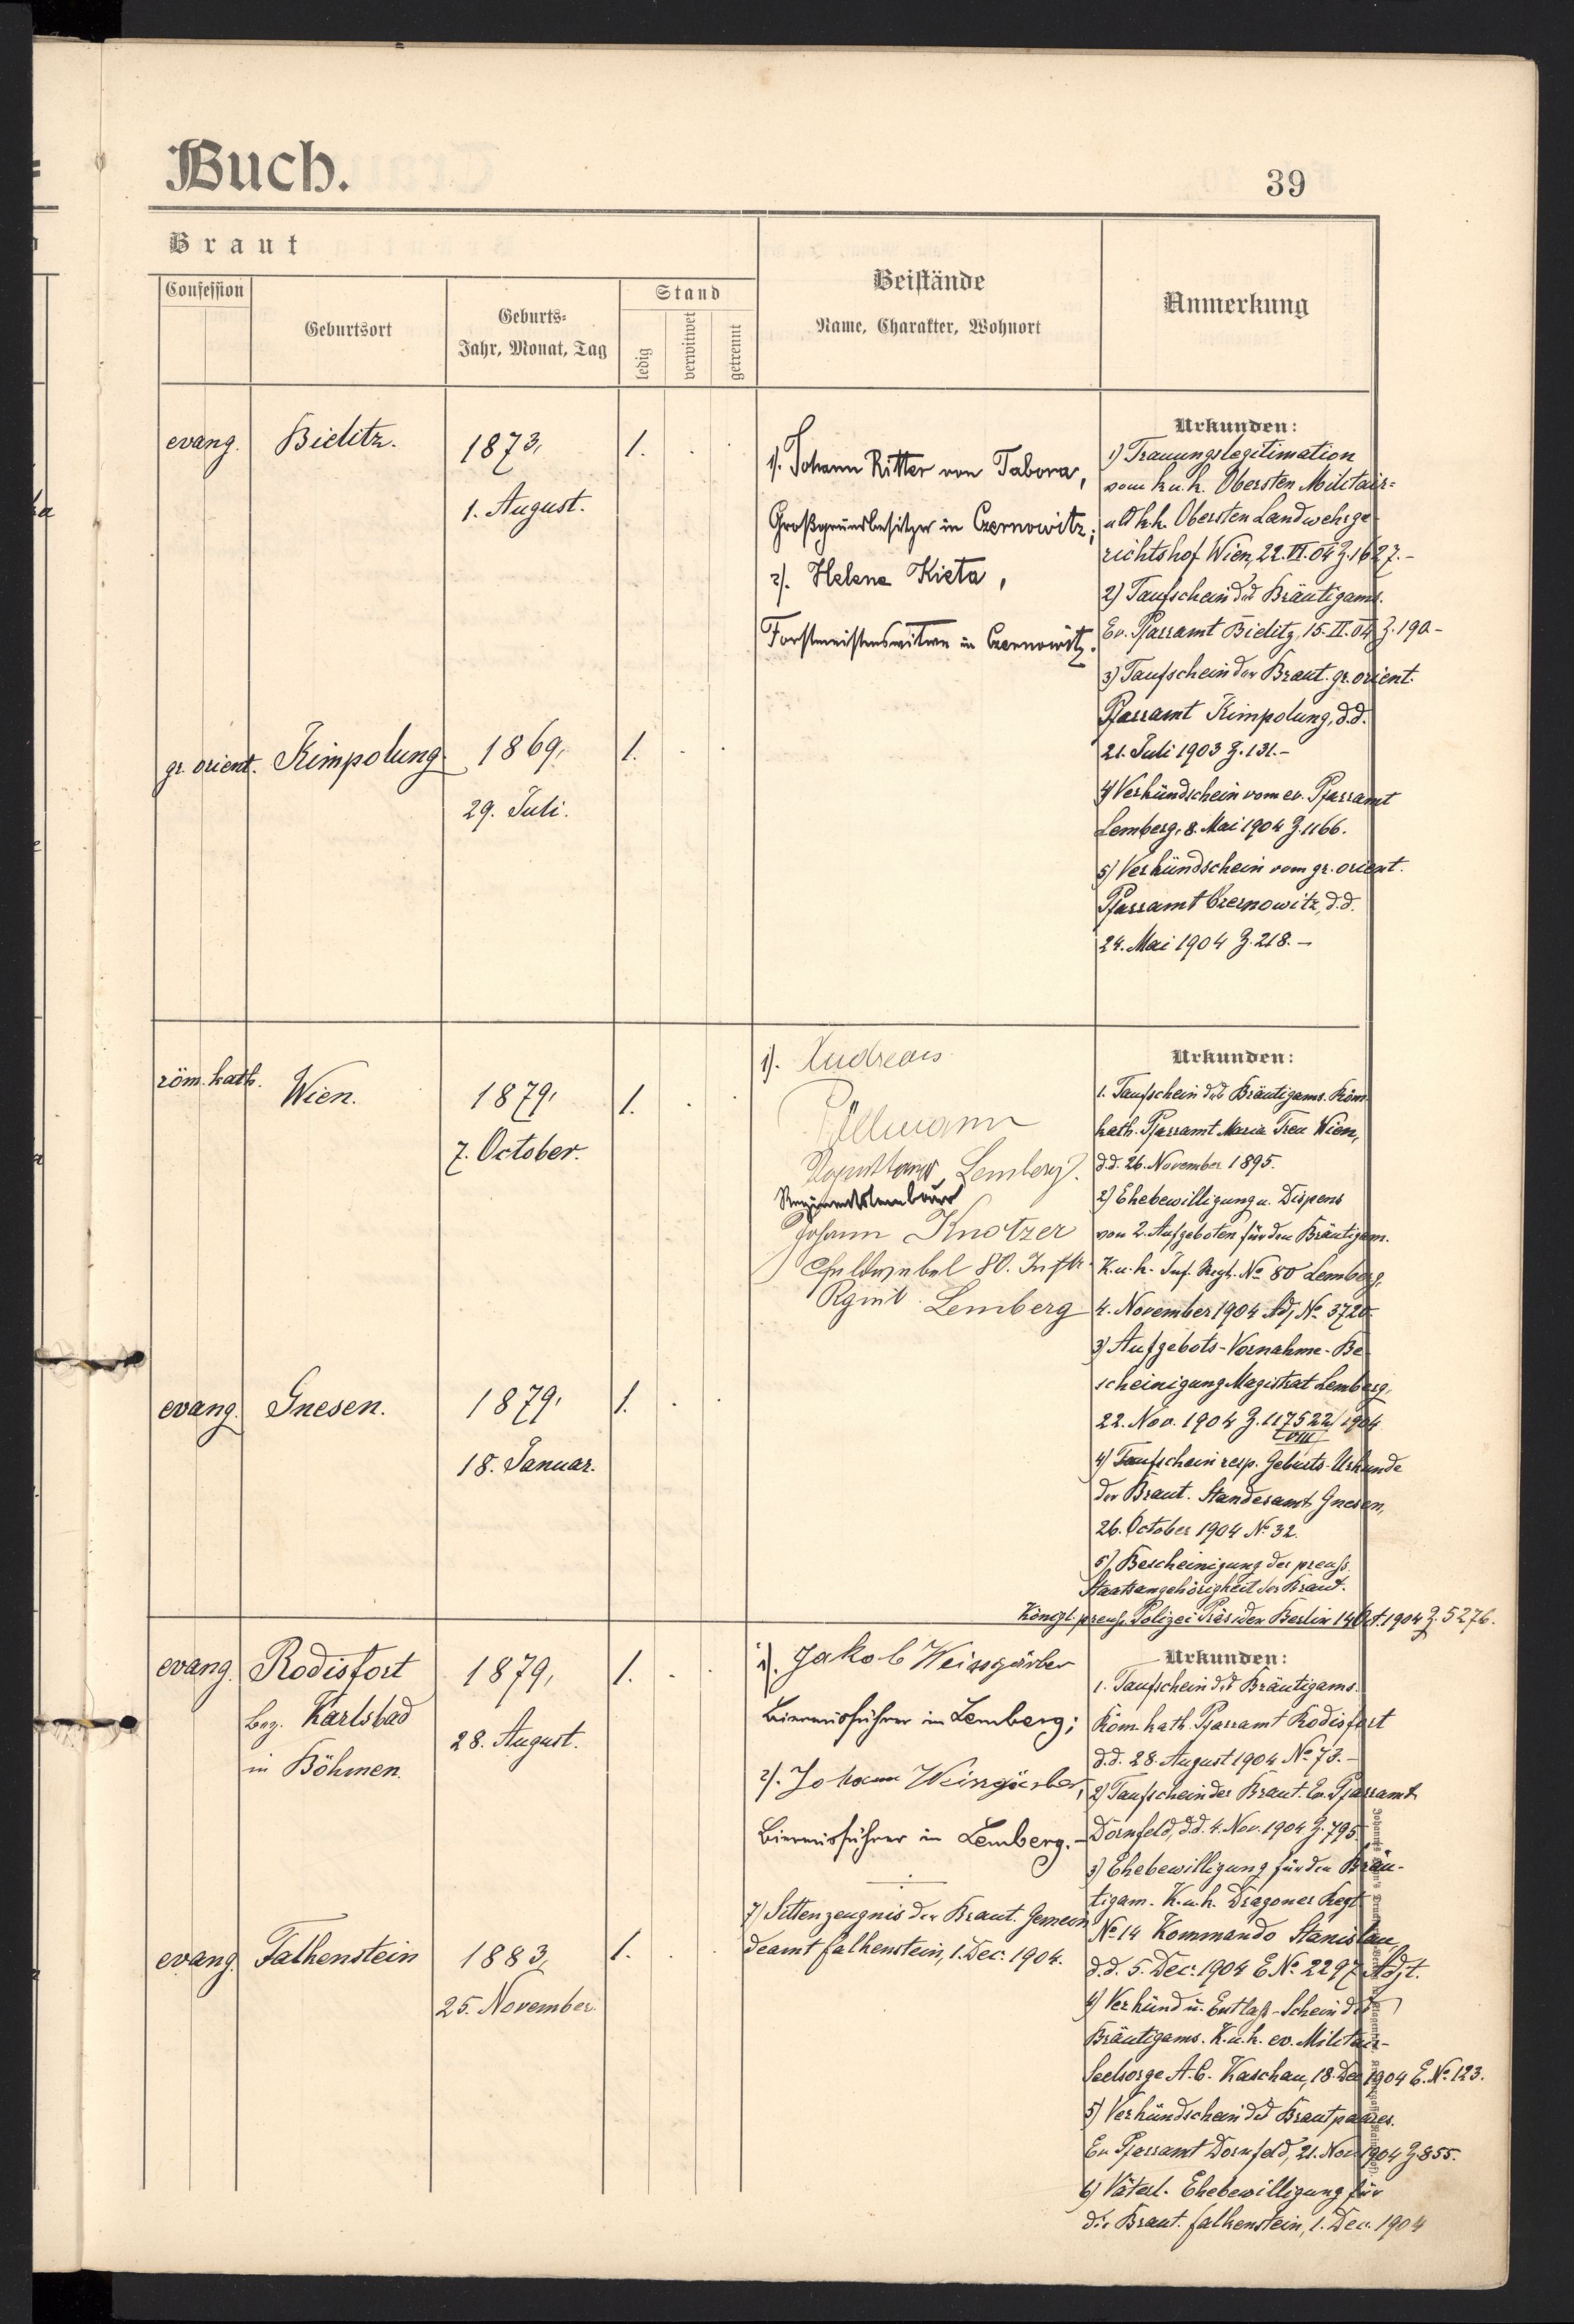 Buch.
39
Braut
Confession
Geburtsort
Geburts-
Jahr, Monat, Tag
Stand
ledig
verwitwet
getrennt
Beistände
Name, Charakter, Wohnort
Anmerkung
evang. Bielitz. 1873, 1. . .
1. August.
1). Johann Ritter von Tabora,
Großgrundbesitzer in Czernowitz;
2). Helene Kieta,
Forstmeisterswitwe in Czernowitz.
Urkunden:
1) Trauungslegitimation
vom k.u.k. Obersten Militair-
als k.k. Obersten Landwehrge-
richtshof Wien, 22. VI. 04 Z. 1627.-
2) Taufschein des Bräutigams.
Ev. Pfarramt Bielitz, 15. II. 04 Z. 190-
3) Taufschein der Braut. gr. orient.
Pfarramt Kimpolung, d.d.
21. Juli 1903 Z. 131.-
4) Verkündschein vom ev. Pfarramt
Lemberg, 8. Mai 1904 Z. 1166.
5) Verkündschein vom gr. orient.
Pfarramt Czernowitz, d.d.
24. Mai 1904 Z. 218.-
gr. orient. Kimpolung 1869, 1. . .
29. Juli.
röm. kath. Wien. 1879, 1. . .
7. October.
1). Andreas
Püllmann
Lemberg.
Regimentstambour
Johann Knotzer
Feldwebel 80. Inftr.
Rgmt Lemberg
Urkunden:
1. Taufschein des Bräutigams. Röm.
kath. Pfarramt Maria Treu Wien,
d.d. 26. November 1895.
2) Ehebewilligung u. Dispens
von 2. Aufgeboten für den Bräutigam.
K.u.k. Inf. Regt. No 80 Lemberg,
4. November 1904 Adj. No 3720.
3) Aufgebots-Vornahme-Be-
scheinigung Magistrat Lemberg,
22. Nov. 1904 Z. 117522/1904
VIII
4) Taufschein resp. Geburts-Urkunde
der Braut. Standesamt Gnesen,
26. October 1904 No 32.
5) Bescheinigung der preuß.
Staatsangehörigkeit der Braut.
Königl. preuß. Polizei Präsiden Berlin 14 Oct. 1904 Z. 5276.
evang. Gnesen. 1879, 1. . .
18. Januar.
evang. Rodisfort 1879, 1. . .
bez. Karlsbad
28. August.
in Böhmen.
1). Jakob Weissgärber
Bierausführer in Lemberg;
2). Johann Weissgärber,
Bierausführer in Lemberg.-
7) Sittenzeugnis der Braut. Gemein
deamt Falkenstein, 1. Dec. 1904.
Urkunden:
1. Taufschein des Bräutigams.
Röm. kath. Pfarramt Rodisfort
d.d. 28. August 1904 No 73.-
2) Taufschein der Braut. Ev. Pfarramt
Dornfeld, d.d. 4. Nov. 1904 Z. 795.
3) Ehebewilligung für den Bräu-
tigam. K.u.k. Dragoner Regt.
No 14 Kommando Stanislau,
d.d. 5. Dec. 1904 E No. 2297 Adjt.
4) Verkünd u. Entlaß-Schein des
Bräutigams. K.u.k. ev. Militair-
Seelsorge A.C. Kaschau, 18. Dec 1904 E. No. 123.
5) Verkündschein des Brautpaares.
Ev. Pfarramt Dornfeld, 21. Nov. 1904 Z. 855.
6) Väterl. Ehebewilligung für
die Braut. Falkenstein, 1. Dec. 1904
evang. Falkenstein 1883, 1. . .
25. November.